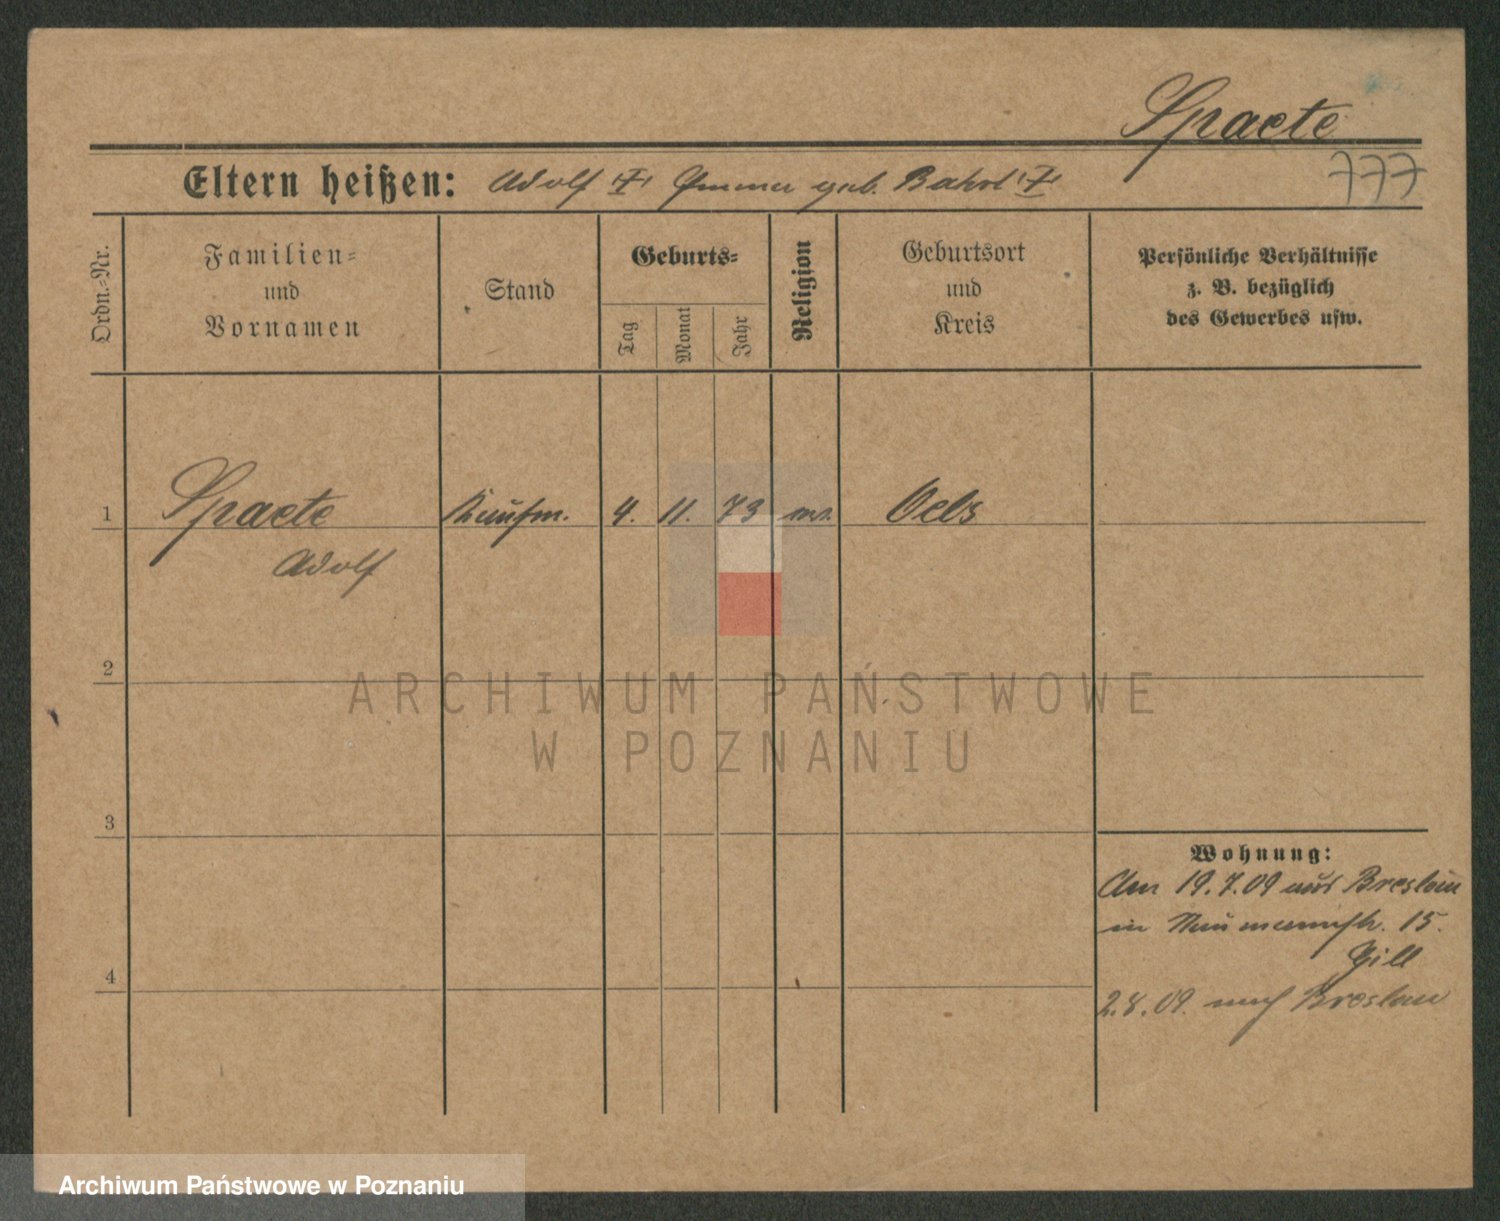 Spaete
777
Eltern heißen: Adolf † Emma geb. Bahr †
Ordn.-Nr.
Familien-
und
Vornamen
Stand
Geburts-
Tag
Monat
Jahr
Religion
Geburtsort
und
Kreis
Persönliche Verhältnisse
z. B. bezüglich
des Gewerbes usw.
1 Spaete Kaufm. 4. 11. 73 Oels
Adolf
2
ARCHIWUM PAŃSTWOWE
W POZNANIU
3
Wohnung:
Am 19.7.09 aus Breslau
in Naumannstr. 15.
Gill
4
2.8.09. nach Breslau
Archiwum Państwowe w Poznaniu